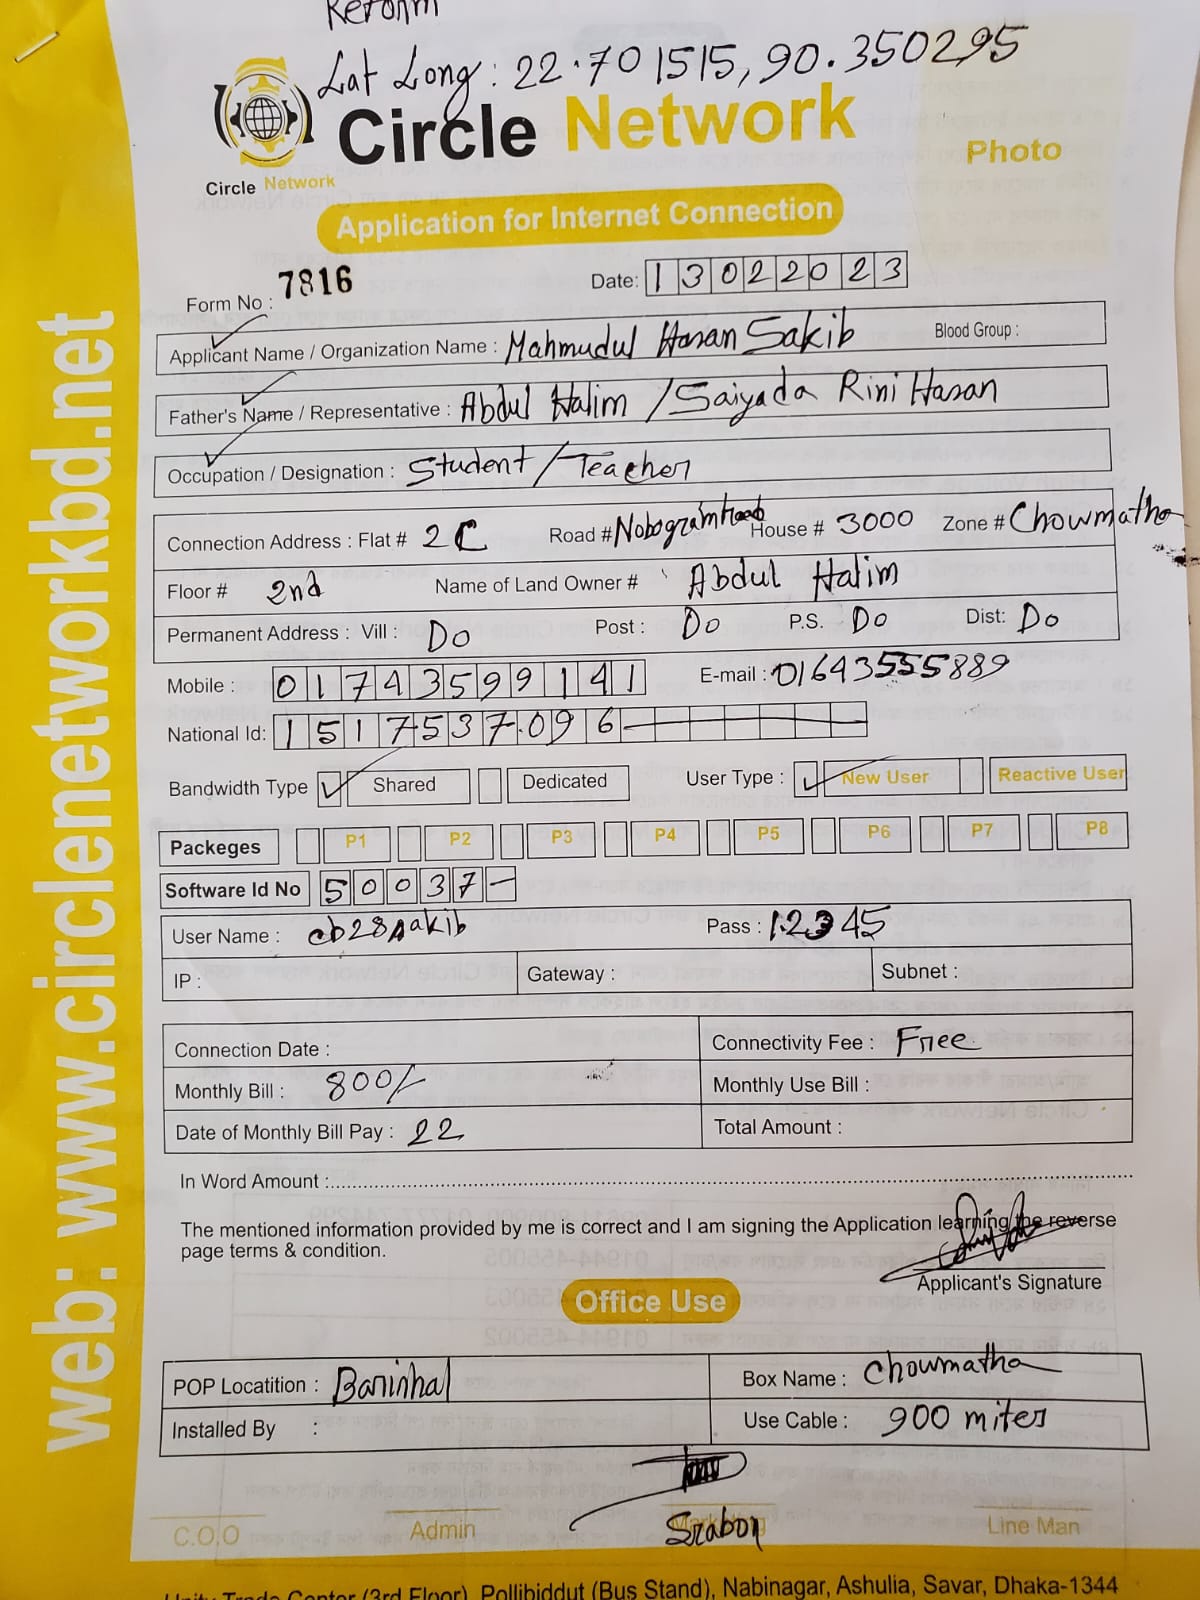 Reform
Lat Long: 22.701515, 90.350295
Circle Network
Circle Network
Photo
Application for Internet Connection
Form No : 7816 Date: 13022023
Applicant Name / Organization Name : Mahmudul Hasan Sakib Blood Group :
Father's Name / Representative : Abdul Halim / Saiyada Rini Hasan
Occupation / Designation : Student / Teacher
Connection Address : Flat # 2C Road # Nobogram Road House # 3000 Zone # Chowmatha
Floor # 2nd Name of Land Owner # Abdul Halim
Permanent Address : Vill : Do Post : Do P.S. Do Dist: Do
Mobile : 01743599141 E-mail : 01643555889
National Id: 1517537096
Bandwidth Type Shared Dedicated User Type : New User Reactive User
Packeges P1 P2 P3 P4 P5 P6 P7 P8
Software Id No 50037-
User Name : cb28sakib Pass : 12345
IP : Gateway : Subnet :
Connection Date : Connectivity Fee : Free
Monthly Bill : 800/- Monthly Use Bill :
Date of Monthly Bill Pay : 22 Total Amount :
In Word Amount :
The mentioned information provided by me is correct and I am signing the Application learning the reverse
page terms & condition.
Applicant's Signature
Office Use
POP Locatition : Barishal Box Name : Chowmatha
Installed By : Use Cable : 900 miter
Srabon
C.O.O Admin Line Man
Unity Trade Center (3rd Floor), Pollibiddut (Bus Stand), Nabinagar, Ashulia, Savar, Dhaka-1344
web: www.circlenetworkbd.net